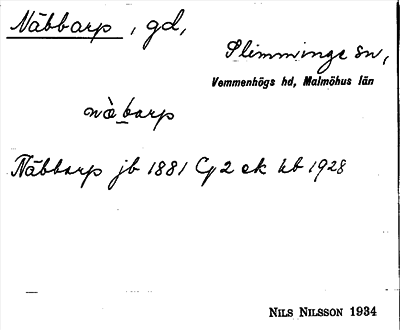 Näbbarp, gd,
Slimminge sn,
Vemmenhögs hd, Malmöhus län
nàbarp
Näbbarp jb 1881 Cy 2 ek hb 1928
NILS NILSSON 1934